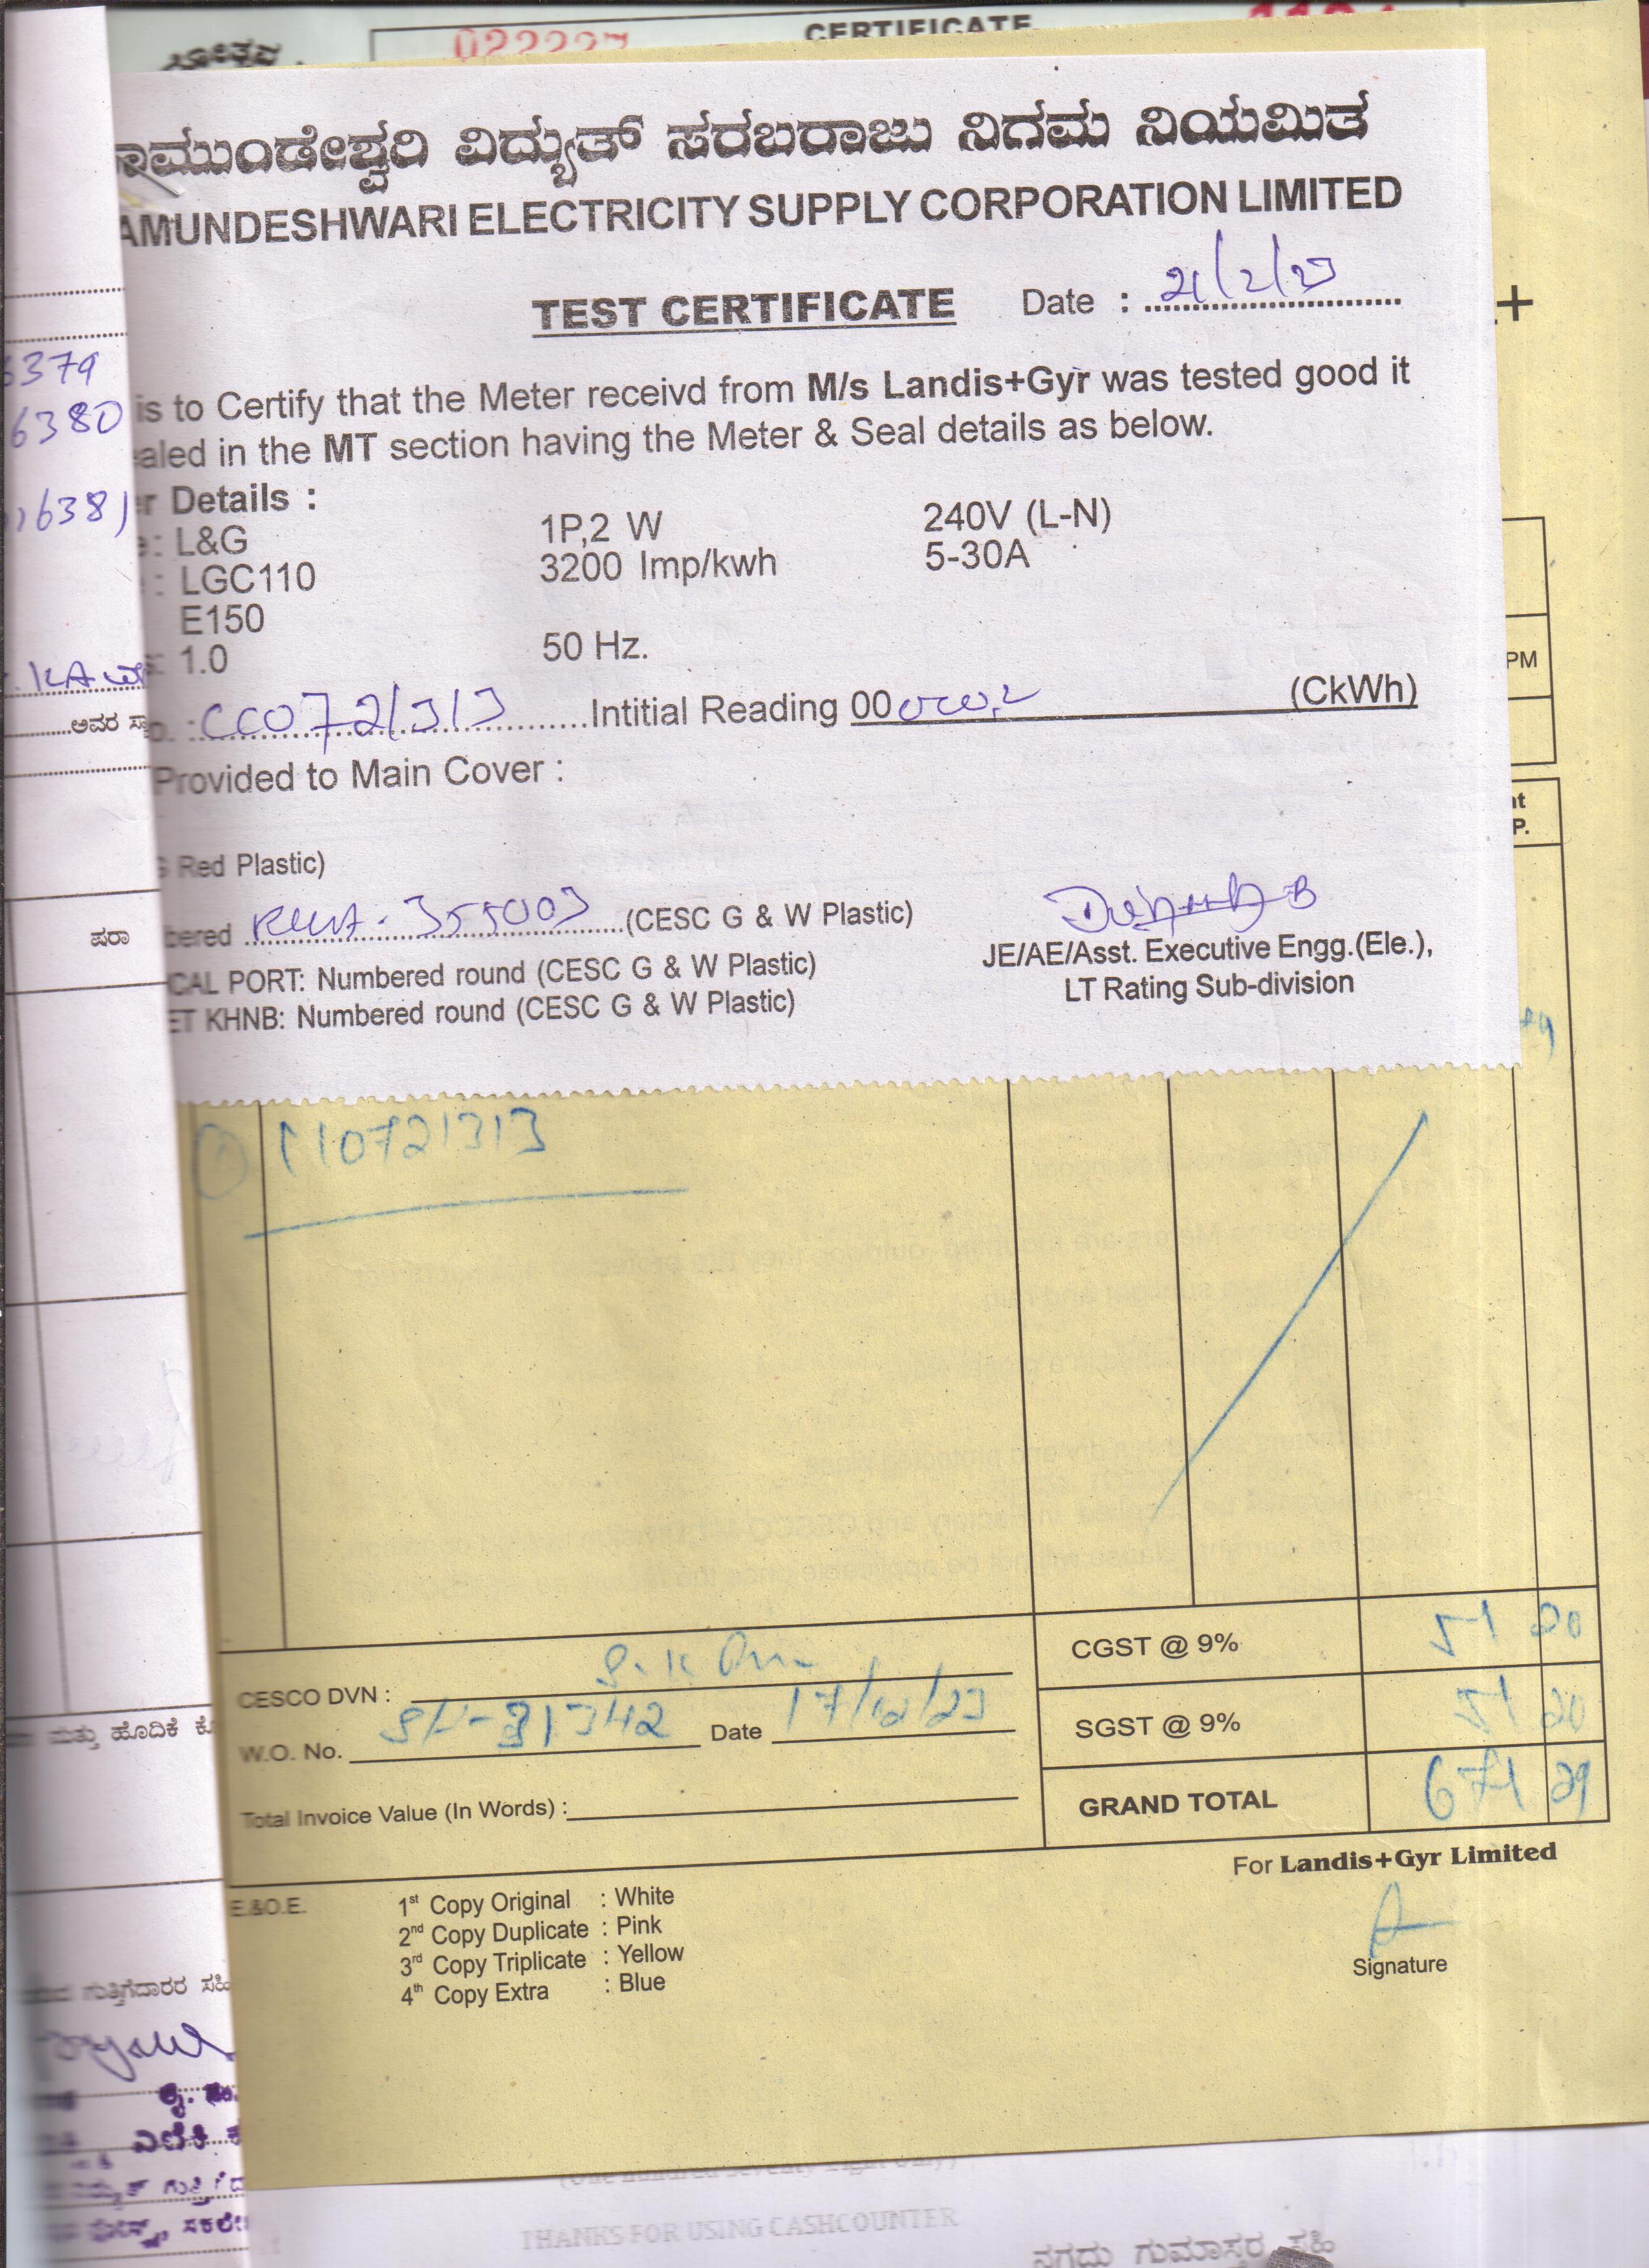 022227 CERTIFICATE
ಾಮುಂಡೇಶ್ವರಿ ವಿದ್ಯುತ್ ಸರಬರಾಜು ನಿಗಮ ನಿಯಮಿತ
AMUNDESHWARI ELECTRICITY SUPPLY CORPORATION LIMITED
TEST CERTIFICATE Date : 21/2/23
is to Certify that the Meter receivd from M/s Landis+Gyr was tested good it
aled in the MT section having the Meter & Seal details as below.
r Details :
: L&G 1P,2 W 240V (L-N)
: LGC110 3200 Imp/kwh 5-30A
E150
: 1.0 50 Hz.
CC0721313 Intitial Reading 00 (CkWh)
Provided to Main Cover :
Red Plastic)
bered 355003 (CESC G & W Plastic)
JE/AE/Asst. Executive Engg.(Ele.),
LT Rating Sub-division
CAL PORT: Numbered round (CESC G & W Plastic)
ET KHNB: Numbered round (CESC G & W Plastic)
6379
6380
16381
ಅವರ
ಷರಾ
+
PM
P.
110721313
CGST @ 9% 51 20
CESCO DVN :
SGST @ 9% 51 20
W.O. No. 31342 Date 17/02/23
GRAND TOTAL 671 29
Total Invoice Value (In Words) :
For Landis+Gyr Limited
E.&O.E.
1st Copy Original : White
2nd Copy Duplicate : Pink
3rd Copy Triplicate : Yellow
4th Copy Extra : Blue
Signature
ಮತ್ತು ಹೊದಿಕೆ
ಗುತ್ತಿಗೆದಾರರ ಸಹಿ
THANKS FOR USING CASHCOUNTER
ನಗದು ಗುಮಾಸ್ತರ ಸಹಿ